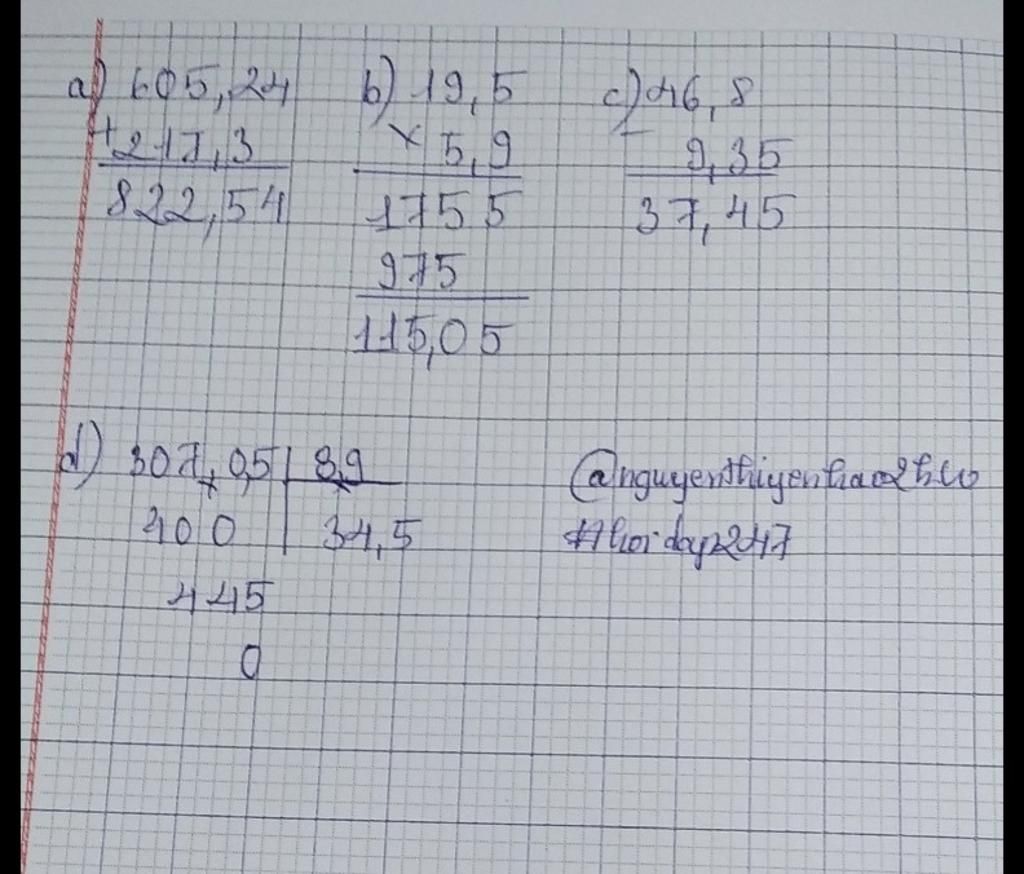 a) 605,24
+ 217,3
822,54
b) 19,5
× 5,9
1755
975
115,05
c) 46,8
- 9,35
37,45
d) 307,0,5 8,9
400 34,5
445
0
@nguyenthiyenhao2563
#hoidap247